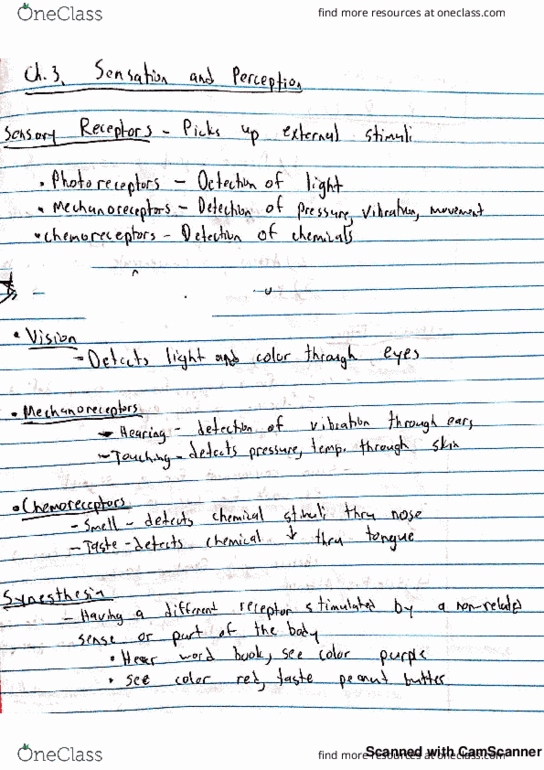 OneClass
find more resources at oneclass.com
Ch. 3. Sensation and Perception
Sensory Receptors - Picks up external stimuli
• Photoreceptors - Detection of light
• Mechanoreceptors - Detection of pressure, vibration, movement
• chemoreceptors - Detection of chemicals
• Vision
- Detects light and color through eyes
• Mechanoreceptors
- Hearing - detection of vibration through ears
- Touching - detects pressure, temp. through skin
• Chemoreceptors
- Smell - detects chemical stimuli thru nose
- Taste - detects chemical ↓ thru tongue
Synesthesia
- Having a different receptor stimulated by a non-related
sense or part of the body
• Hear word book, see color purple
• see color red, taste peanut butter
OneClass
find more resources at oneclass.com
Scanned with CamScanner